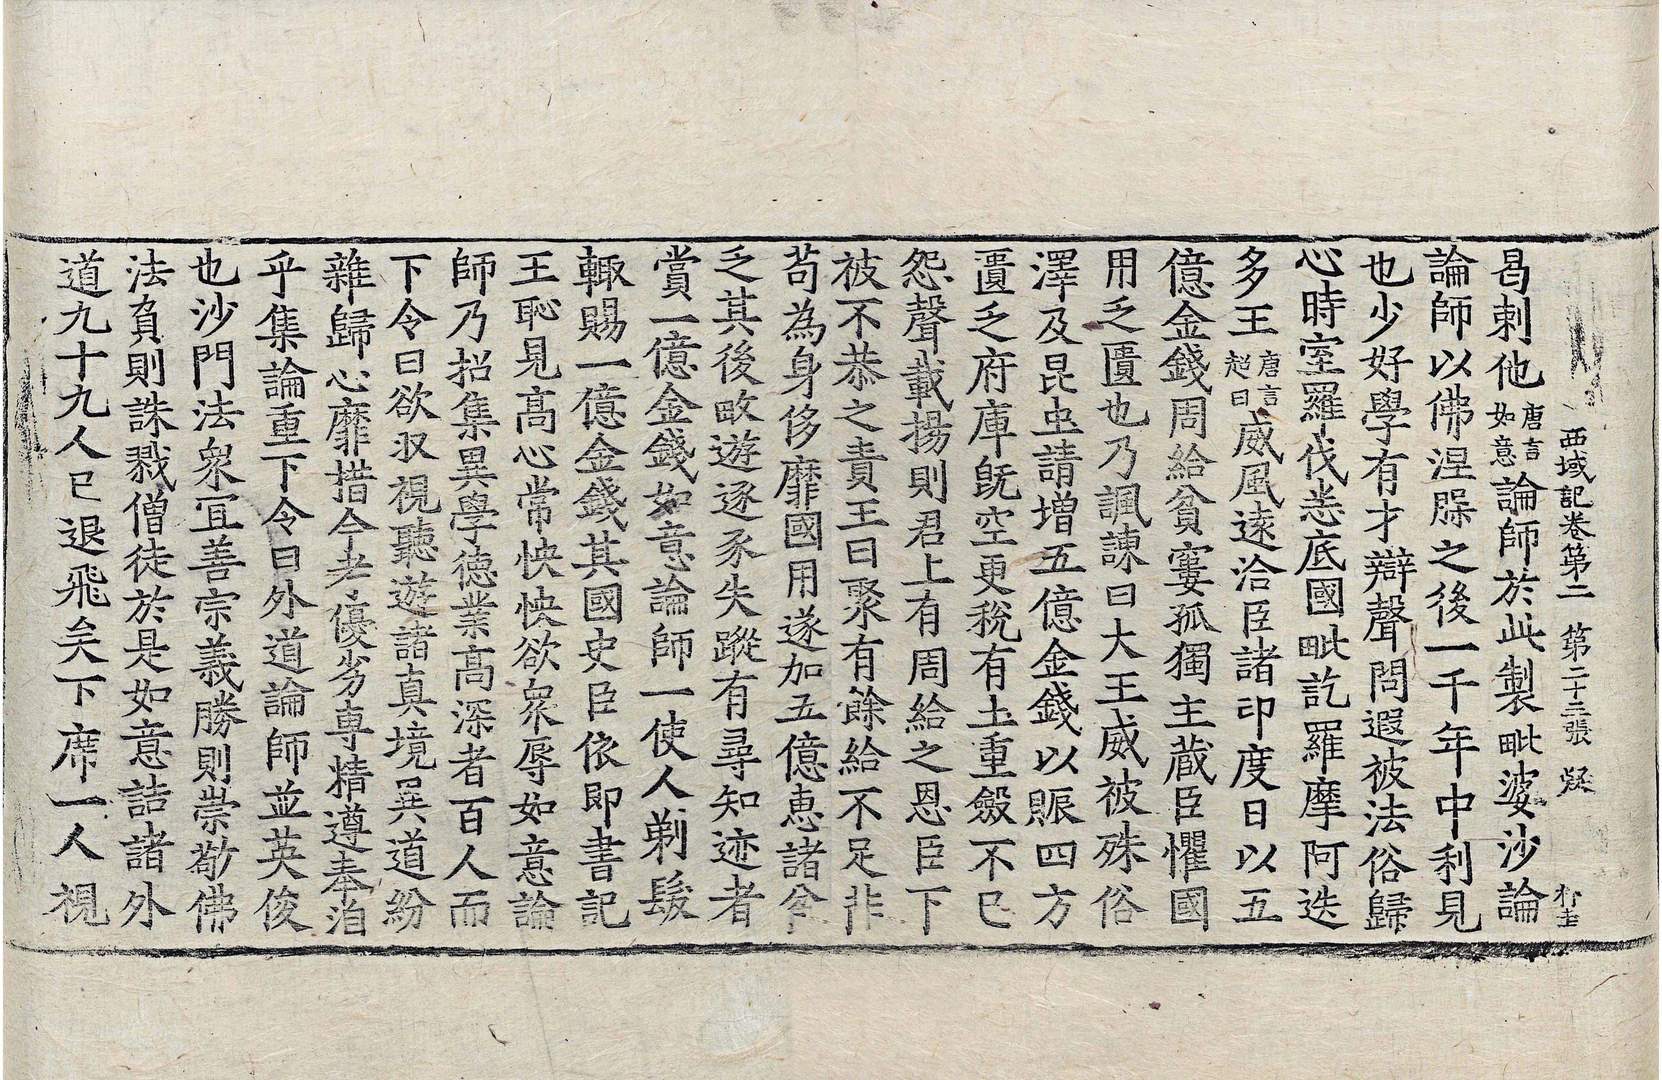 西域記卷第二 第二十三張 㠜
曷剌他唐言如意論師於此製毗婆沙論
論師以佛涅槃之後一千年中利見
也少好學有才辯聲問遐被法俗歸
心時室羅伐悉底國毗訖羅摩阿迭
多王唐言超日威風遠洽臣諸印度日以五
億金錢周給貧窶孤獨主藏臣懼國
用乏匱也乃諷諫曰大王威被殊俗
澤及昆虫請增五億金錢以賑四方
匱乏府庫旣空更稅有土重斂不已
怨聲載揚則君上有周給之恩臣下
被不恭之責王曰聚有餘給不足非
苟為身侈靡國用遂加五億惠諸貧
乏其後畋遊逐豕失蹤有尋知迹者
賞一億金錢如意論師一使人剃髮
輙賜一億金錢其國史臣依即書記
王恥見髙心常怏怏欲衆辱如意論
師乃招集異學德業高深者百人而
下令曰欲収視聽遊諸真境異道紛
雜歸心靡措今考優劣専精遵奉洎
乎集論重下令曰外道論師並英俊
也沙門法衆冝善宗義勝則崇敬佛
法負則誅戮僧徒於是如意詰諸外
道九十九人已退飛矣下席一人視